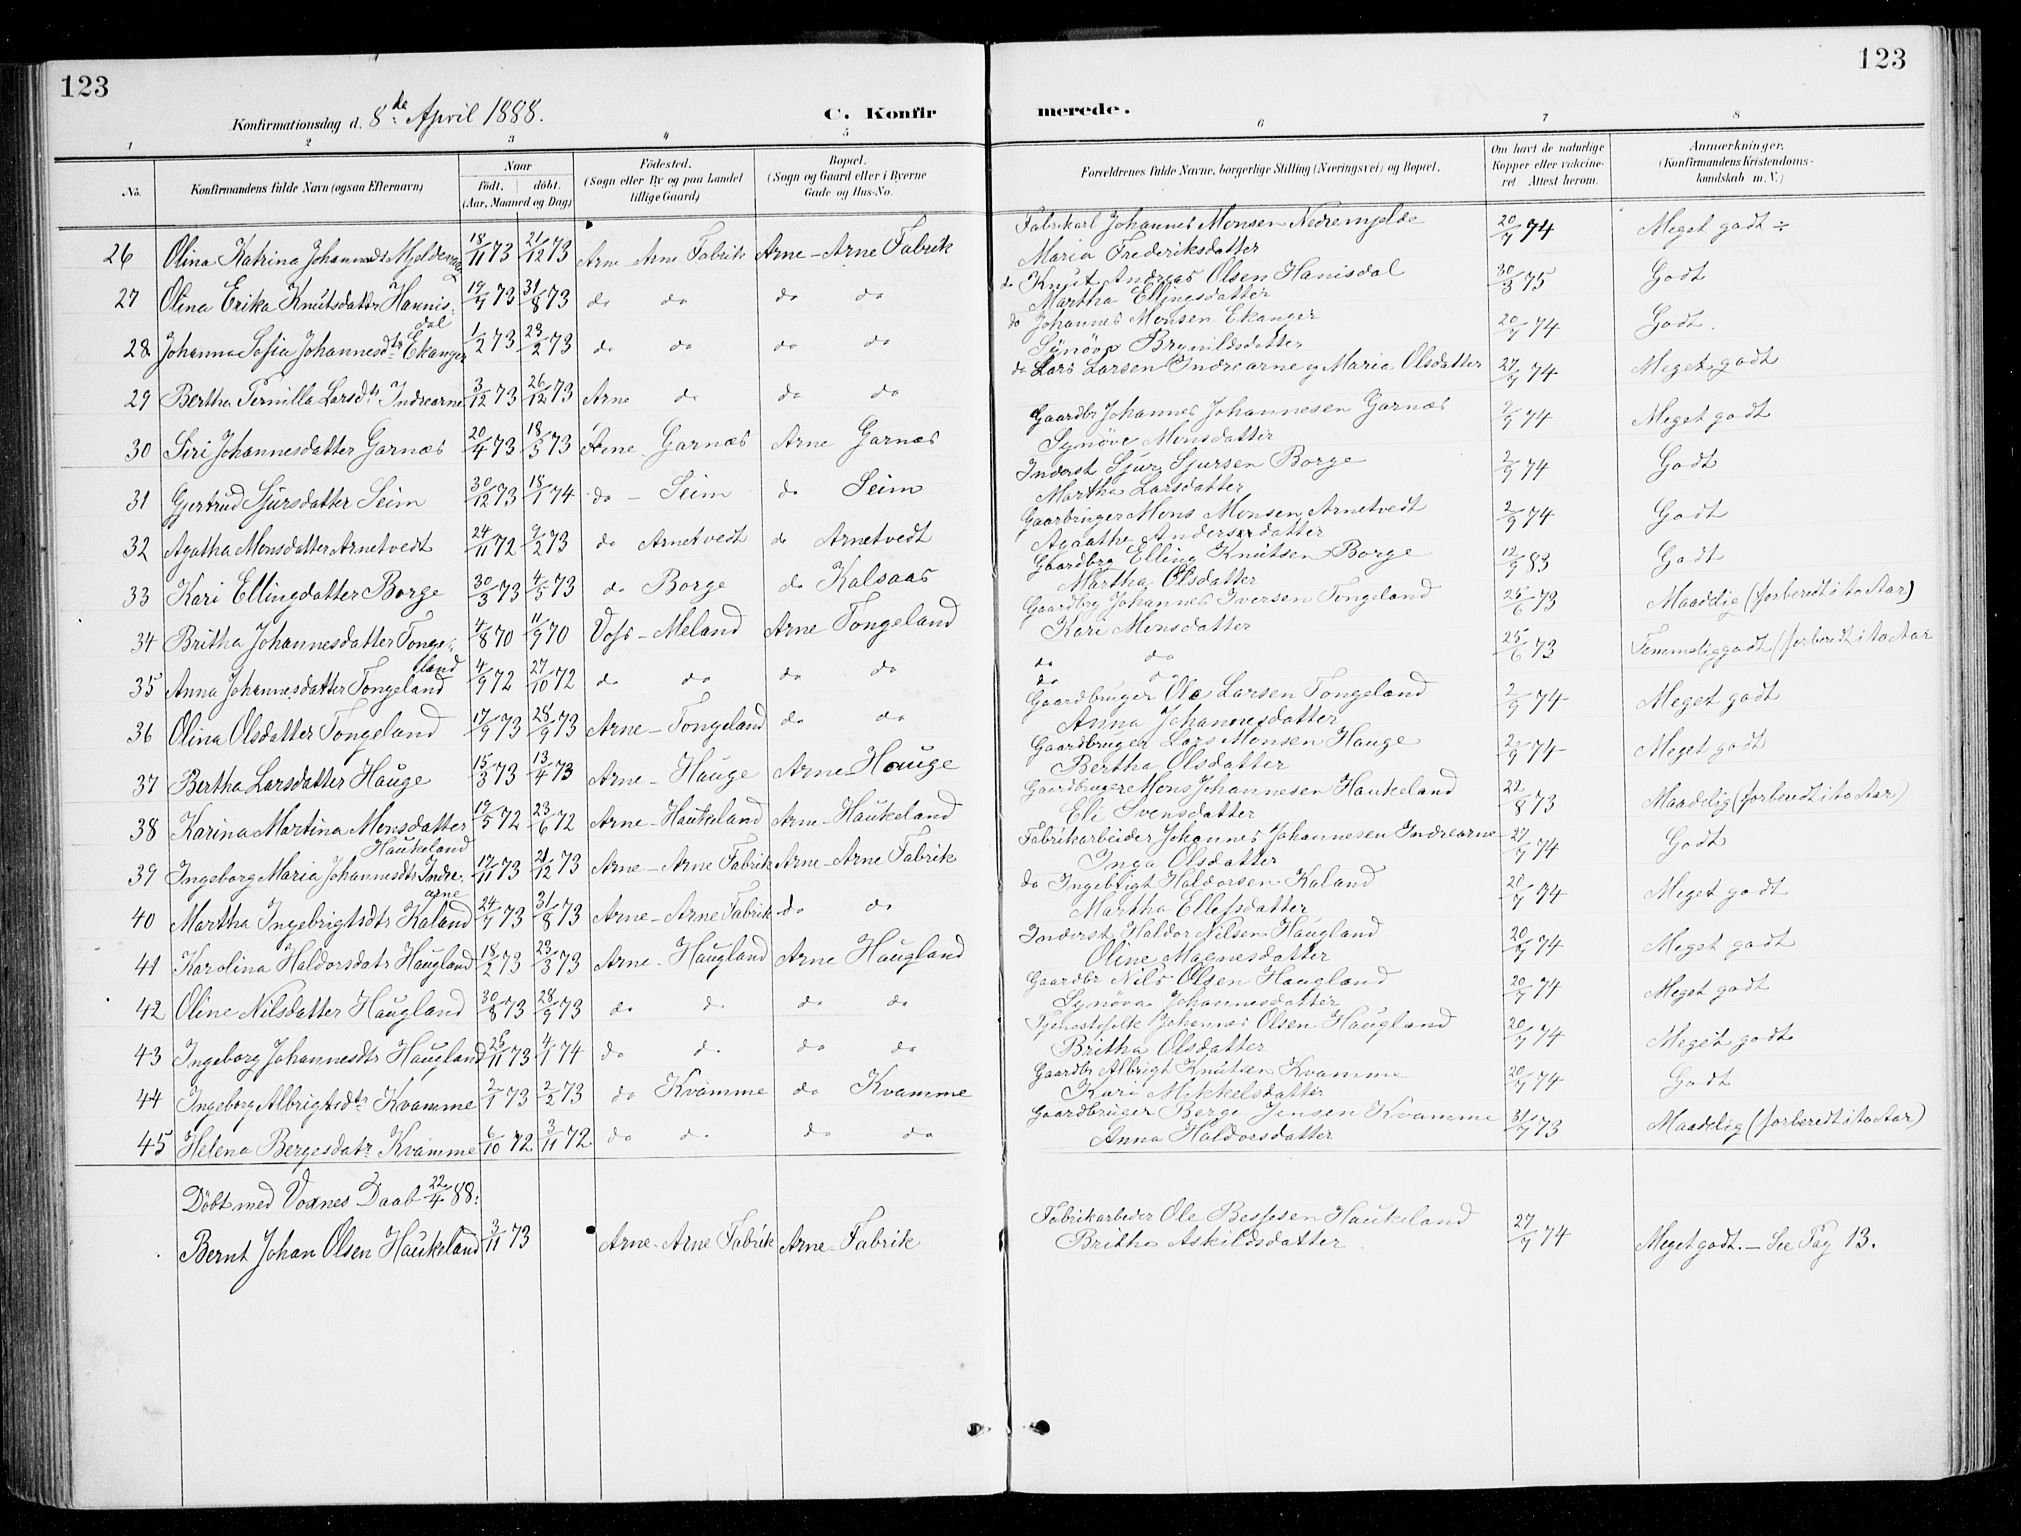 123
123
Konfirmationsdag d. 8de April 1888.
C. Konfirmerede.
1 2 3 4 5 6 7 8
No.
Konfirmandens fulde Navn (ogsaa Efternavn)
Naar
födt. döbt.
(Aar, Maaned og Dag)
Födested.
(Sogn eller By og paa Landet
tillige Gaard)
Bopæl.
(Sogn og Gaard eller i Byerne
Gade og Hus-No.
Forældrenes fulde Navne, borgerlige Stilling (Næringsvei) og Bopæl.
Om havt de naturlige
Kopper eller vakcine-
ret Attest herom.
Anmærkninger.
(Konfirmandens Kristendoms-
kundskab m. V.)
26 Olina Katrina Johannesdtr Mjeldem 18/11 73 21/12 73 Arne - Arne Fabrik Arne - Arne Fabrik Fabrikarl Johannes Monsen Nedremjelde 20/7 74 Meget godt ÷
Maria Frederiksdatter
27 Olina Erika Knutsdatter Hannis- 19/7 73 31/8 73 do do do do do Knut Andreas Olsen Hanisdal 30/3 75 Godt
dal
Martha Ellingsdatter
28 Johanna Sofia Johannesdtr Ekanger 1/2 73 23/2 73 do do do do do Johannes Monsen Ekanger 20/7 74 Godt.
Synöve Brynildsdatter
29 Bertha Pernilla Larsdtr Indrearne 3/12 73 26/12 73 Arne do do do do Lars Larsen Indrearne g Maria Olsdatter 27/7 74 Meget godt
30 Siri Johannesdatter Garnæs 20/4 73 18/5 73 Arne Garnæs Arne Garnæs Gaardbr Johannes Johannesen Garnæs 2/9 74 Meget godt
Synöve Monsdatter
31 Gjertrud Sjursdatter Seim 30/12 73 18/1 74 do - Seim do Seim Inderst Sjur Sjursen Borge 2/9 74 Godt
Martha Larsdatter
32 Agatha Monsdatter Arnetvedt 24/11 72 9/2 73 do Arnetvedt do Arnetvedt Gaarbruger Mons Monsen Arnetvedt 2/9 74 Godt
Agaathe Andersdatter
33 Kari Ellingdatter Borge 30/3 73 4/5 73 do Borge do Kalsaas Gaardbrg Elling Knutsen Borge 12/9 83 Godt
Martha Olsdatter
34 Britha Johannesdatter Tonge- 4/8 70 11/9 70 Voss - Meland Arne Tongeland Gaardbrg Johannes Iversen Tongeland 25/6 73 Maadelig (forberedt i to Aar)
land
Kari Monsdatter
35 Anna Johannesdatter Tongeland 4/9 72 27/10 72 do do do do do do 25/6 73 Temmeliggodt (forberedt i to Aar
do do
36 Olina Olsdatter Tongeland 17/9 73 28/9 73 Arne - Tongeland do do Gaardbruger Ole Larsen Tongeland 2/9 74 Meget godt
Anna Johannesdatter
37 Bertha Larsdatter Hauge 15/3 73 13/4 73 Arne - Hauge Arne Hauge Gaardbruger Lars Monsen Hauge 2/9 74 Meget godt
Bertha Olsdatter
38 Karina Martina Monsdatter 19/5 72 23/6 72 Arne - Haukeland Arne - Haukeland Gaardbruger Mons Johannesen Haukeland 22/8 73 Maadelig (forberedt i to Aar)
Haukeland
Eli Svensdatter
39 Ingeborg Maria Johannesdtr Indre- 19/11 73 21/12 73 Arne - Arne Fabrik Arne - Arne Fabrik Fabrikarbeider Johannes Johannesen Indrearne 27/7 74 Godt
arne
Inga Olsdatter
40 Martha Ingebrigtsdtr Kaland 24/7 73 31/8 73 Arne - Arne Fabrik do do do Ingebrigt Haldorsen Kaland 20/7 74 Meget godt
Martha Ellefsdatter
41 Karolina Haldorsdatr Haugland 18/2 73 23/3 73 Arne - Haugland Arne Haugland Inderst Haldor Nilsen Haugland 20/7 74 Meget godt
Oline Magnesdatter
42 Oline Nilsdatter Haugland 30/8 73 28/9 73 do do do do Gaardbr Nils Olsen Haugland 20/7 74 Meget godt
Synöva Johannesdatter
43 Ingeborg Johannesdtr Haugland 25/11 73 4/1 74 do do do do Tjenestefolk Johannes Olsen Haugland 20/7 74 Meget godt
Britha Olsdatter
44 Ingeborg Albrigtsdtr Kvamme 2/1 73 2/2 73 do Kvamme do Kvamme Gaardbr Albrigt Knutsen Kvamme 20/7 74 Godt
Kari Mikkelsdatter
45 Helena Bergesdatr Kvamme 6/10 72 3/11 72 do do do do Gaardbruger Berge Jensen Kvamme 31/7 73 Maadelig (forberedt i to Aar)
Anna Haldorsdatter
Döbt med Voxnes Daab 22/4 88:
Bernt Johan Olsen Haukeland 3/11 73 Arne - Arne Fabrik Arne - Fabrik Fabrikarbeider Ole Bessesen Haukeland 27/7 74 Meget godt. - See Pag 13.
Britha Askildsdatter